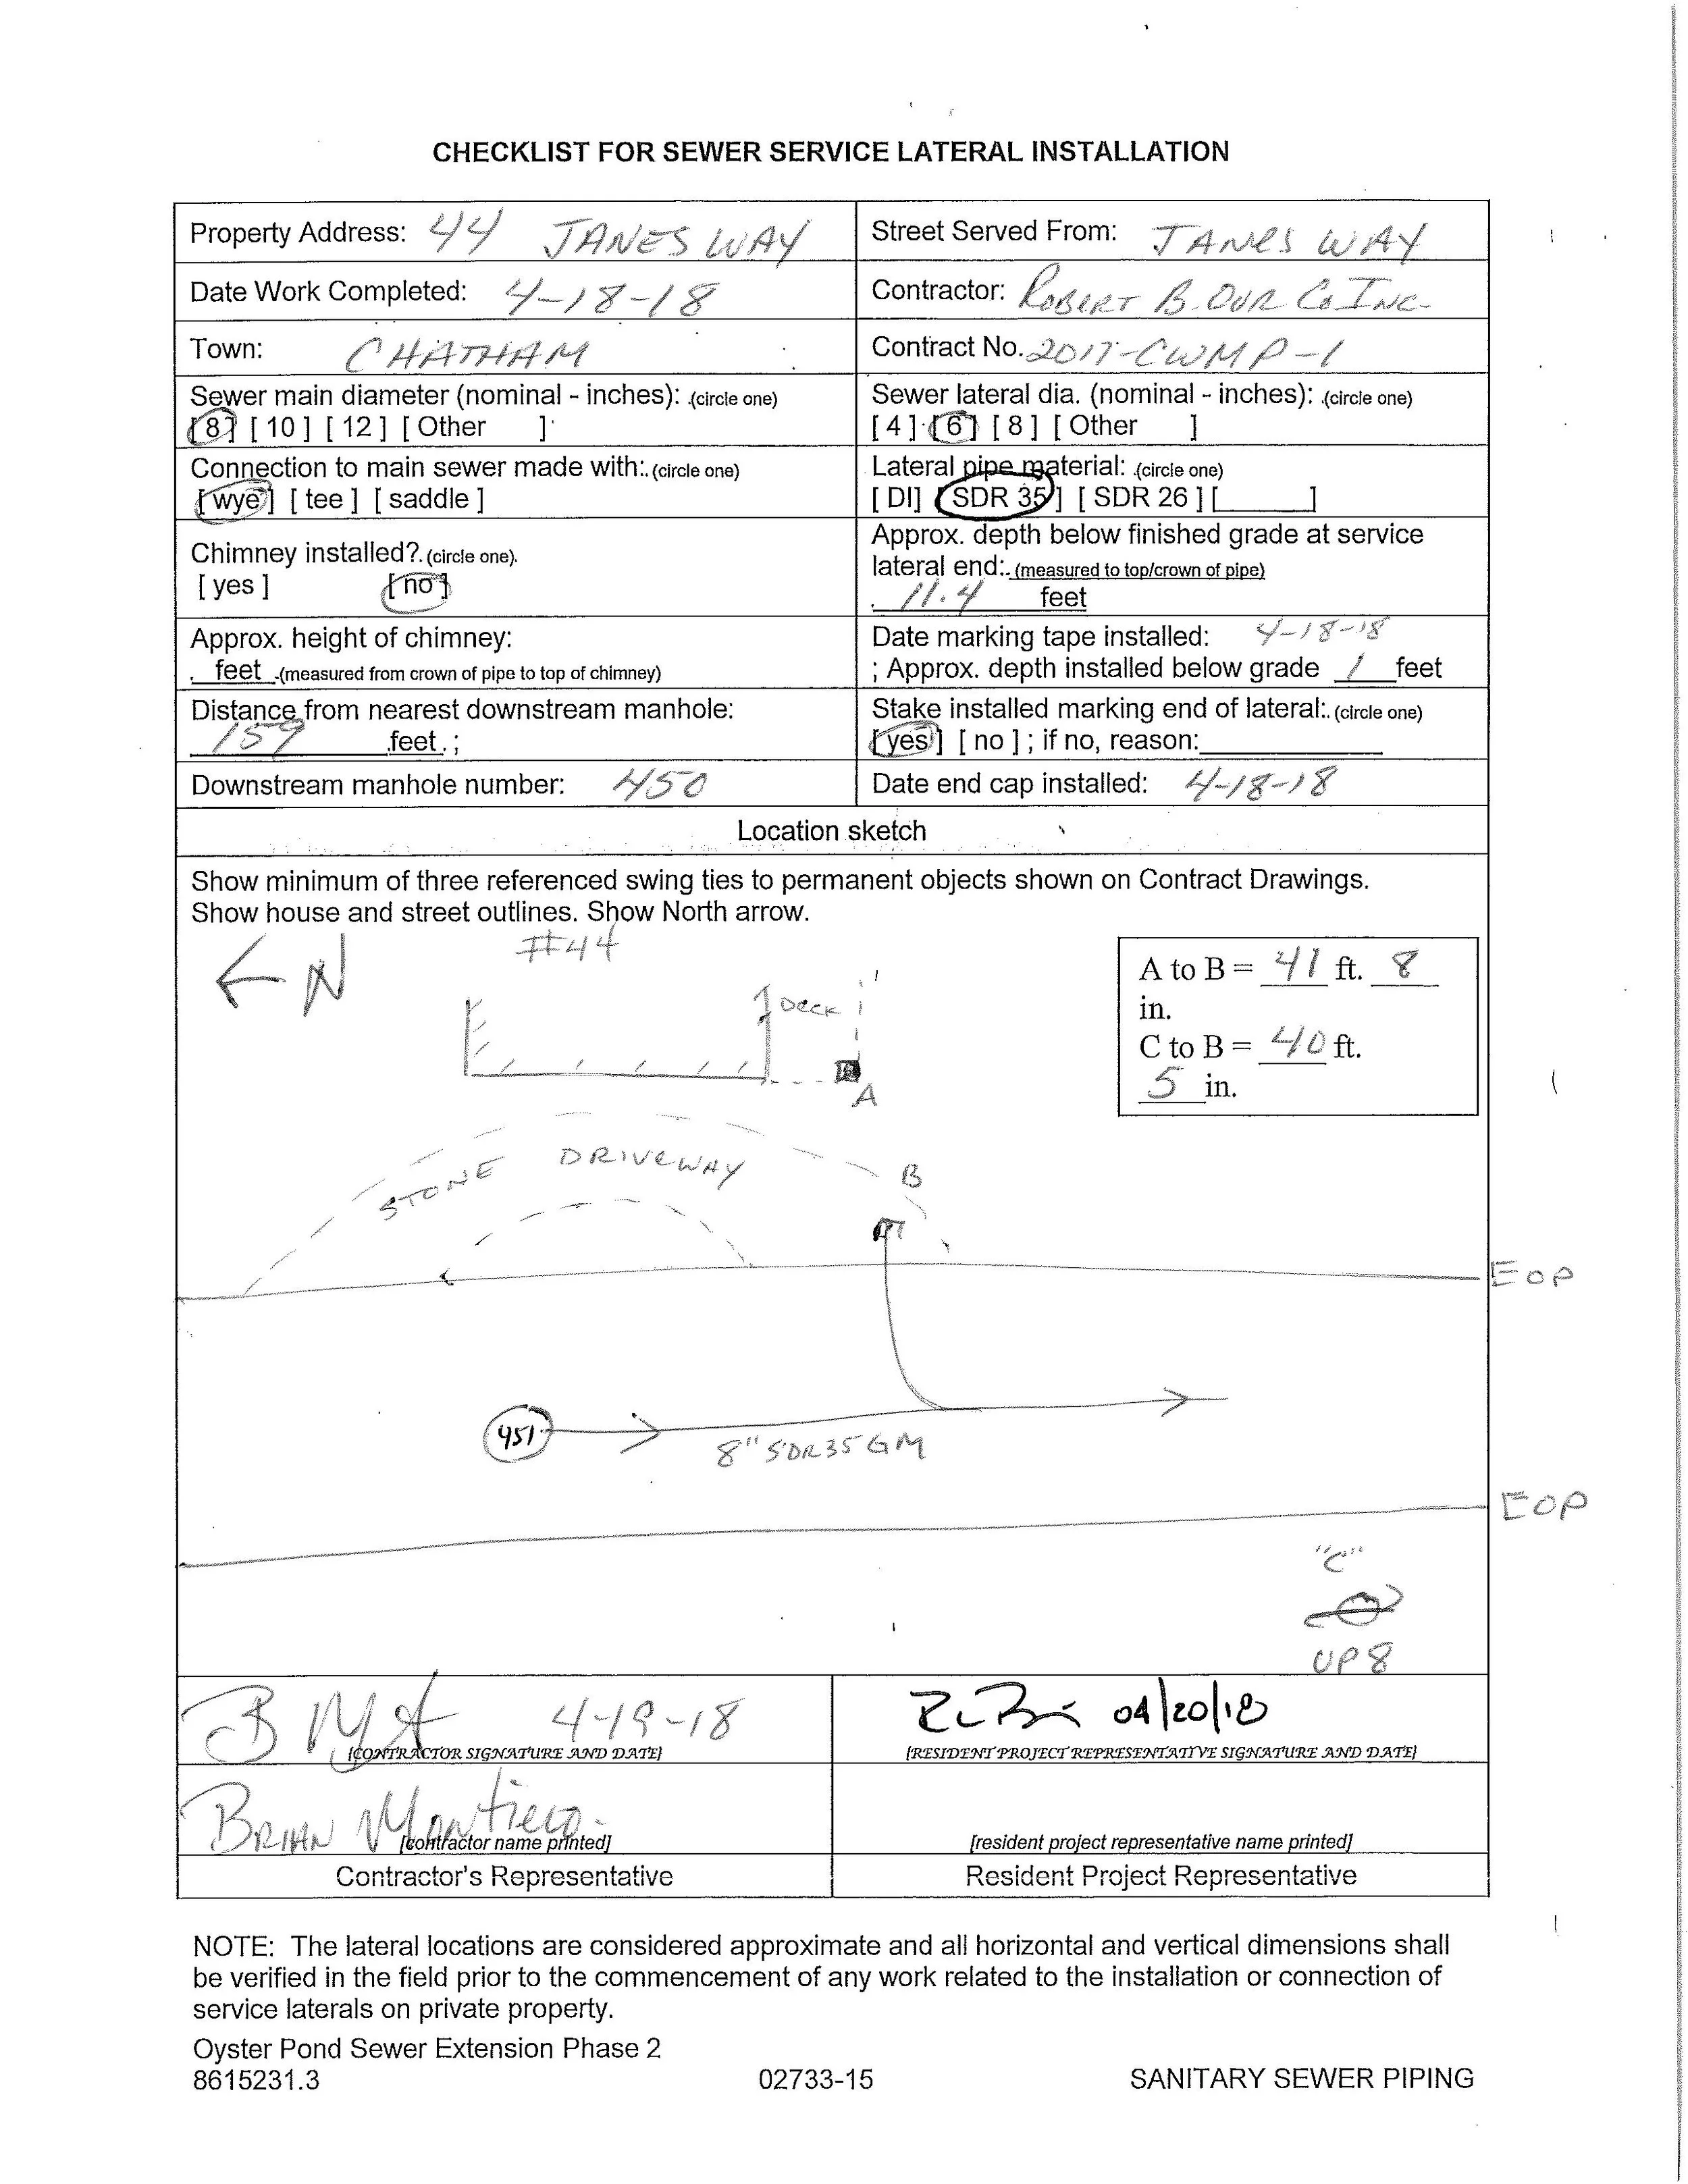 CHECKLIST FOR SEWER SERVICE LATERAL INSTALLATION
Property Address: 44 JANES WAY
Street Served From: JANES WAY
Date Work Completed: 4-18-18
Contractor: ROBERT B. OUR Co INC.
Town: CHATHAM
Contract No. 2017-CWMP-1
Sewer main diameter (nominal - inches): (circle one)
[8] [ 10 ] [ 12 ] [ Other ]
Sewer lateral dia. (nominal - inches): (circle one)
[ 4 ] [6] [ 8 ] [ Other ]
Connection to main sewer made with: (circle one)
[ wye ] [ tee ] [ saddle ]
Lateral pipe material: (circle one)
[ DI] [ SDR 35 ] [ SDR 26 ] [______]
Chimney installed? (circle one).
[ yes ] [ no ]
Approx. depth below finished grade at service
lateral end: (measured to top/crown of pipe)
11.4 feet
Approx. height of chimney:
feet (measured from crown of pipe to top of chimney)
Date marking tape installed: 4-18-18
; Approx. depth installed below grade 1 feet
Distance from nearest downstream manhole:
159 feet ;
Stake installed marking end of lateral: (circle one)
[ yes ] [ no ] ; if no, reason:
Downstream manhole number: 450
Date end cap installed: 4-18-18
Location sketch
Show minimum of three referenced swing ties to permanent objects shown on Contract Drawings.
Show house and street outlines. Show North arrow.
N
#44
A to B = 41 ft. 8
in.
C to B = 40 ft.
5 in.
Deck
A
STONE DRIVEWAY
B
EOP
451
8" SDR35 GM
EOP
"C"
UP 8
4-19-18
[CONTRACTOR SIGNATURE AND DATE]
04/20/18
[RESIDENT PROJECT REPRESENTATIVE SIGNATURE AND DATE]
BRIAN
[contractor name printed]
[resident project representative name printed]
Contractor's Representative
Resident Project Representative
NOTE: The lateral locations are considered approximate and all horizontal and vertical dimensions shall
be verified in the field prior to the commencement of any work related to the installation or connection of
service laterals on private property.
Oyster Pond Sewer Extension Phase 2
8615231.3
02733-15
SANITARY SEWER PIPING